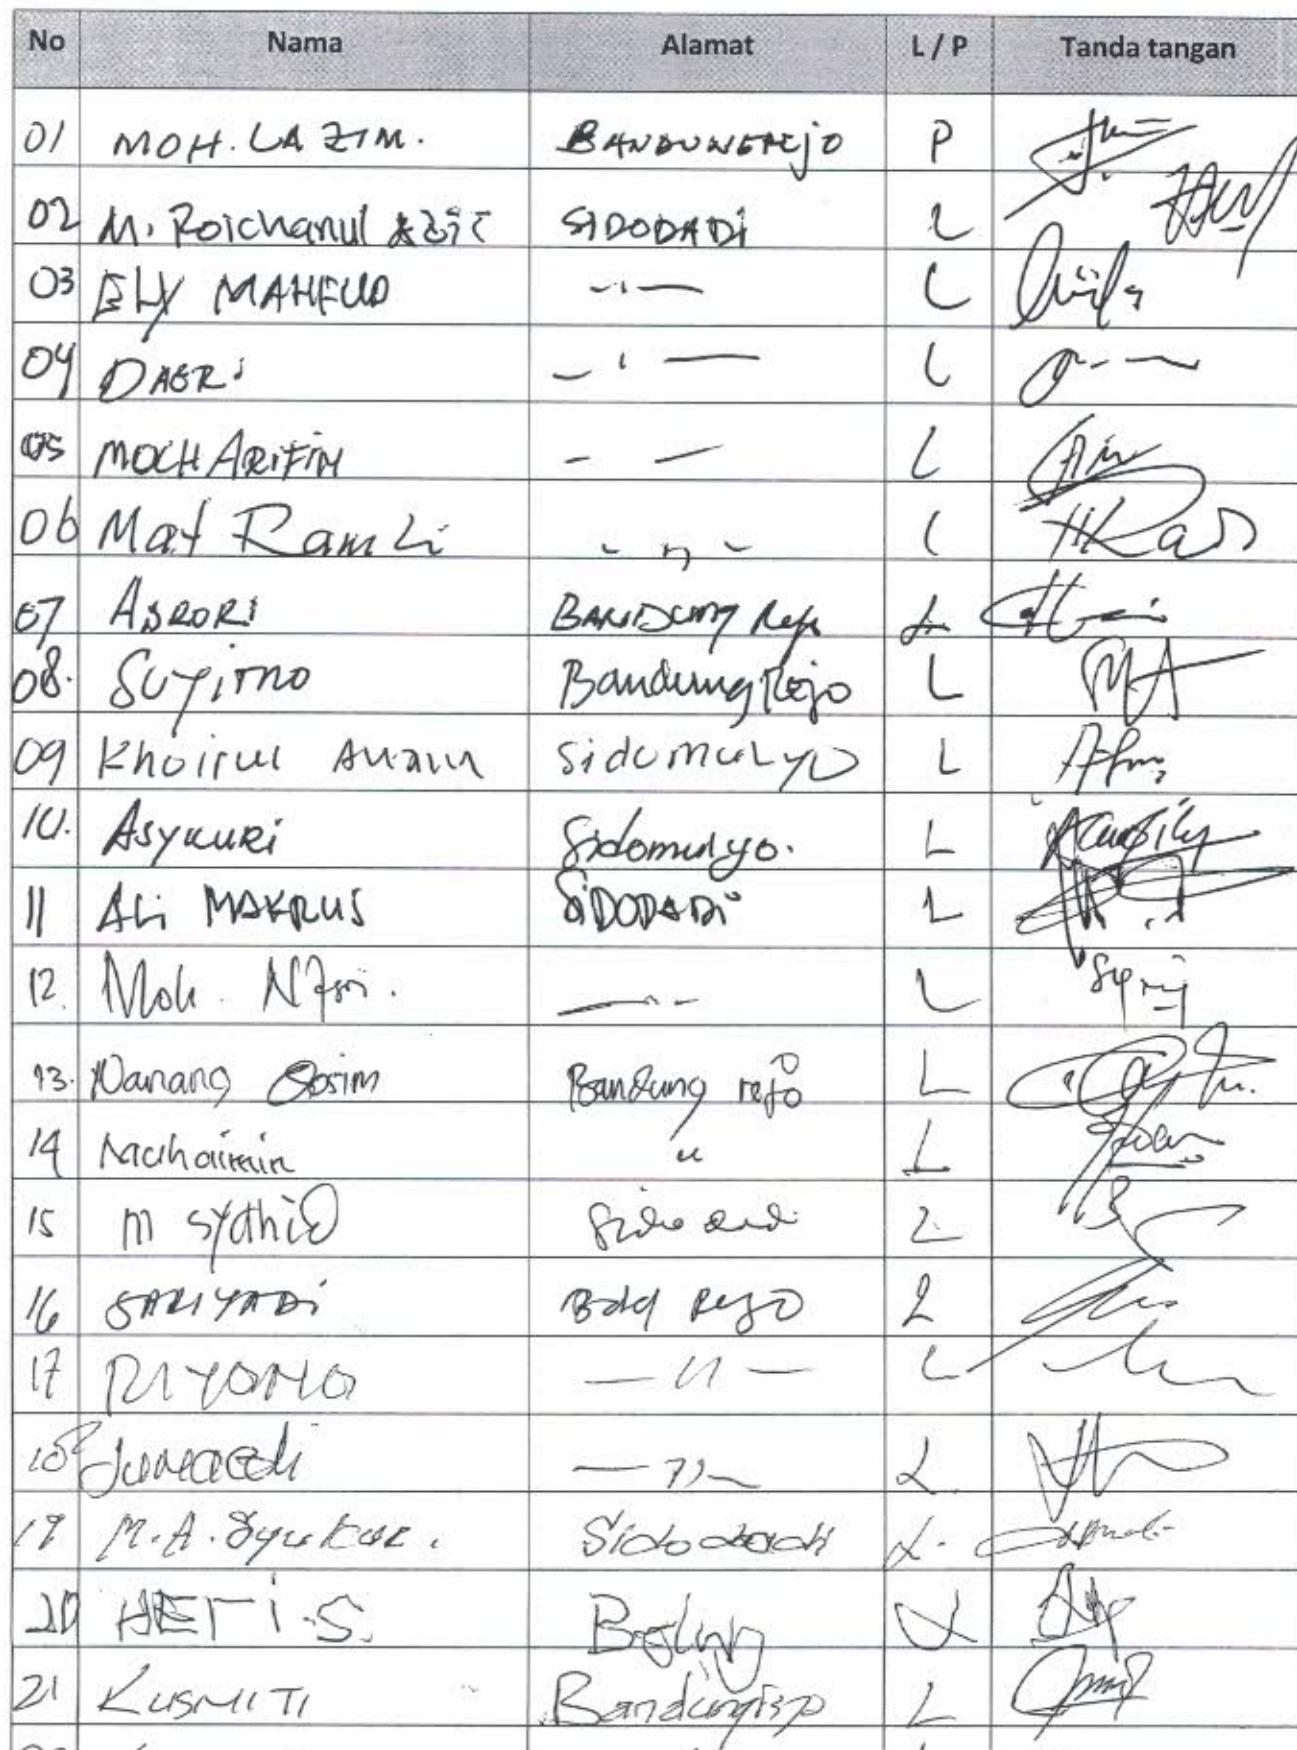 No Nama Alamat L / P Tanda tangan
01 MOH. LAZIM. BANDUNGREJO P
02 M. Roichanul Aziz SIDODADI L
03 ELY MAHFUD -"- L
04 DAERI -"- L
05 MOCH ARIFIN - - L
06 Mat Ramli - " - L
07 ASRORI BANDUNG Rejo L
08. Suyitno Bandung Rejo L
09 Khoirul Anam Sidomulyo L
10. Asykuri Sidomulyo. L
11 ALi MAKRUS SIDODADI L
12. Moh. L
13. Nanang Qosim Bandung rejo L
14 Muhaimin " L
15 M syahid L
16 SARIYADI Bdg Rejo L
17 RIYONO - " - L
18 Junaedi - " - L
19 M.A. Syukur. Sidodadi L.
20 HERI.S. L
21 KUSMITI Bandungrejo L